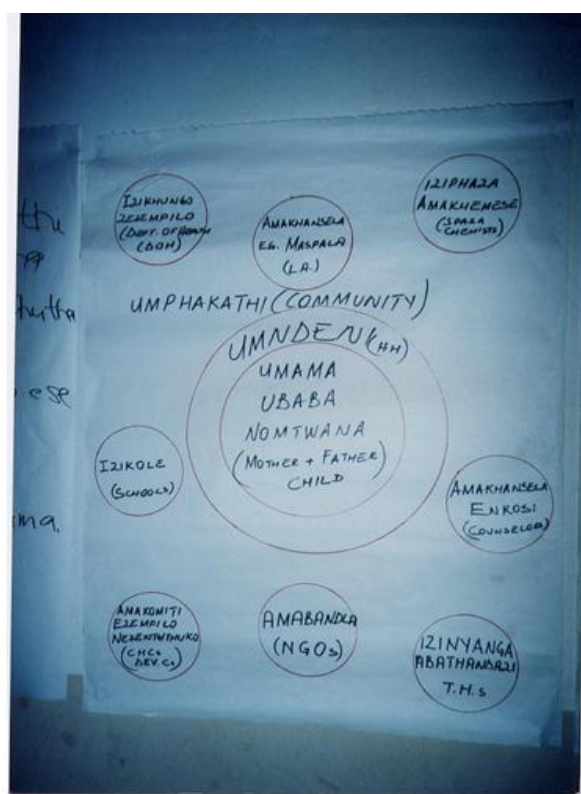 IZIKHUNGO
ZEZEMPILO
(DEPT. OF HEALTH
(DOH)
AMAKHANSELA
EG. MASPALA
(L.A.)
IZIPHAZA
AMAKHEMESE
(SPAZA
CHEMISTS)
UMPHAKATHI (COMMUNITY)
UMNDENI (HH)
UMAMA
UBABA
NOMTWANA
(MOTHER + FATHER)
CHILD
IZIKOLE
(SCHOOLS)
AMAKHANSELA
ENKOSI
(COUNSELOR)
AMAKOMITI
EZEMPILO
NEZENTUTHUKO
(CHCs
DEV.Cs)
AMABANDLA
(NGOs)
IZINYANGA
ABATHANDAZI
T.H.s
ma.